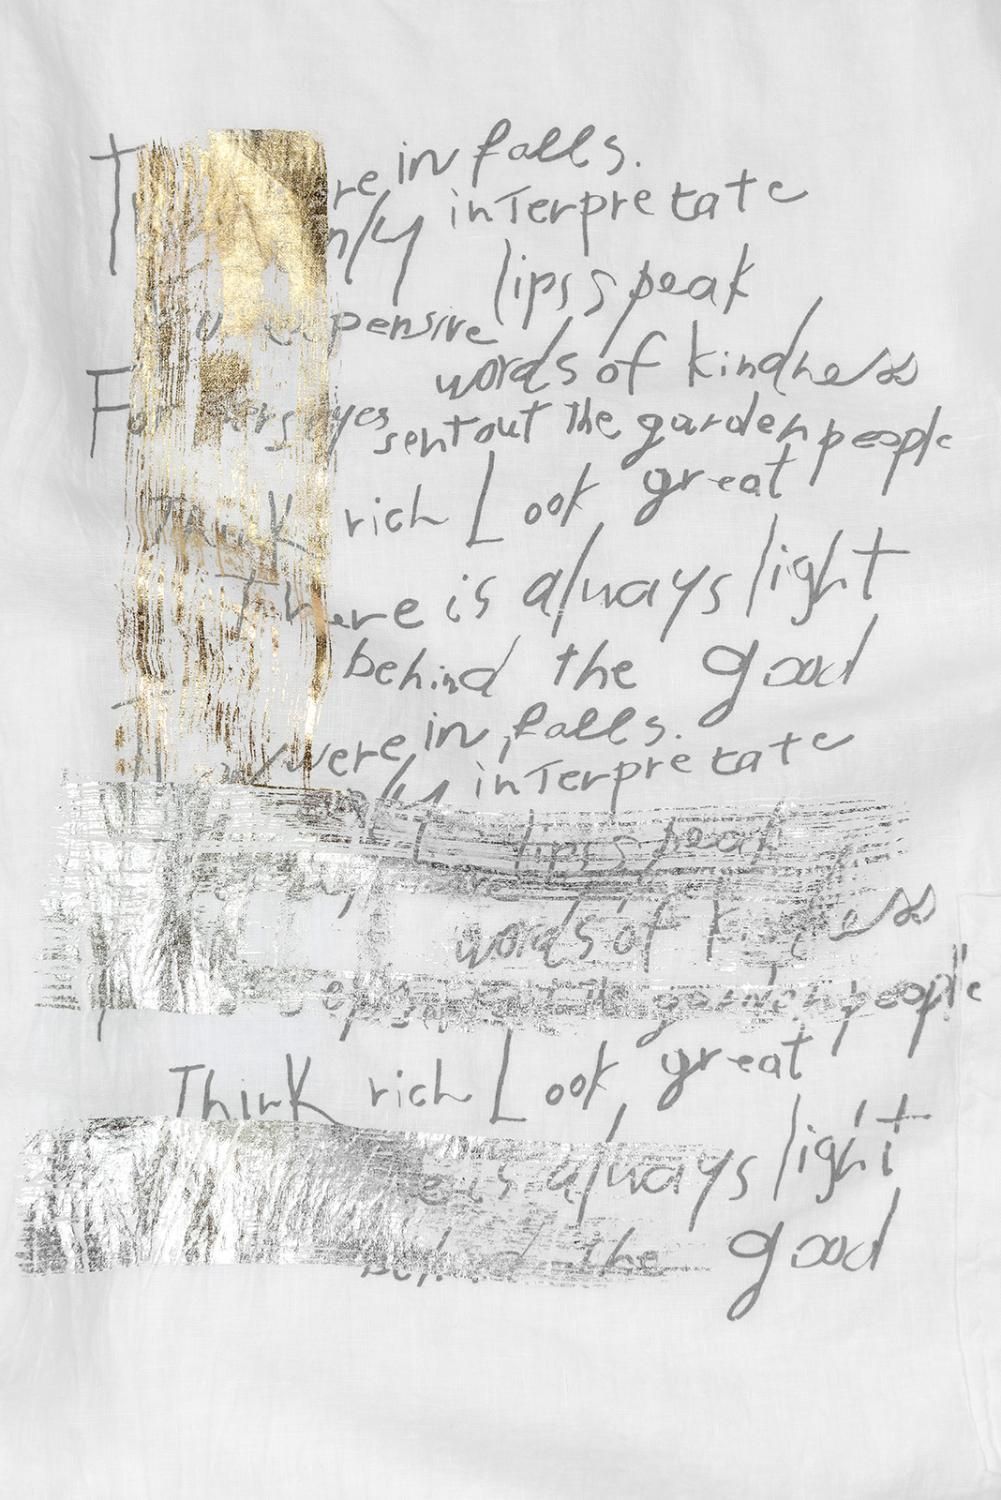 in falls.
interpretate
lips speak
words of kindness
For eyes sent out the garden people
Think rich Look great
There is always light
behind the good
were in falls.
interpretate
lips speak
words of kindness
the garden people
Think rich Look great
is always light
behind the good